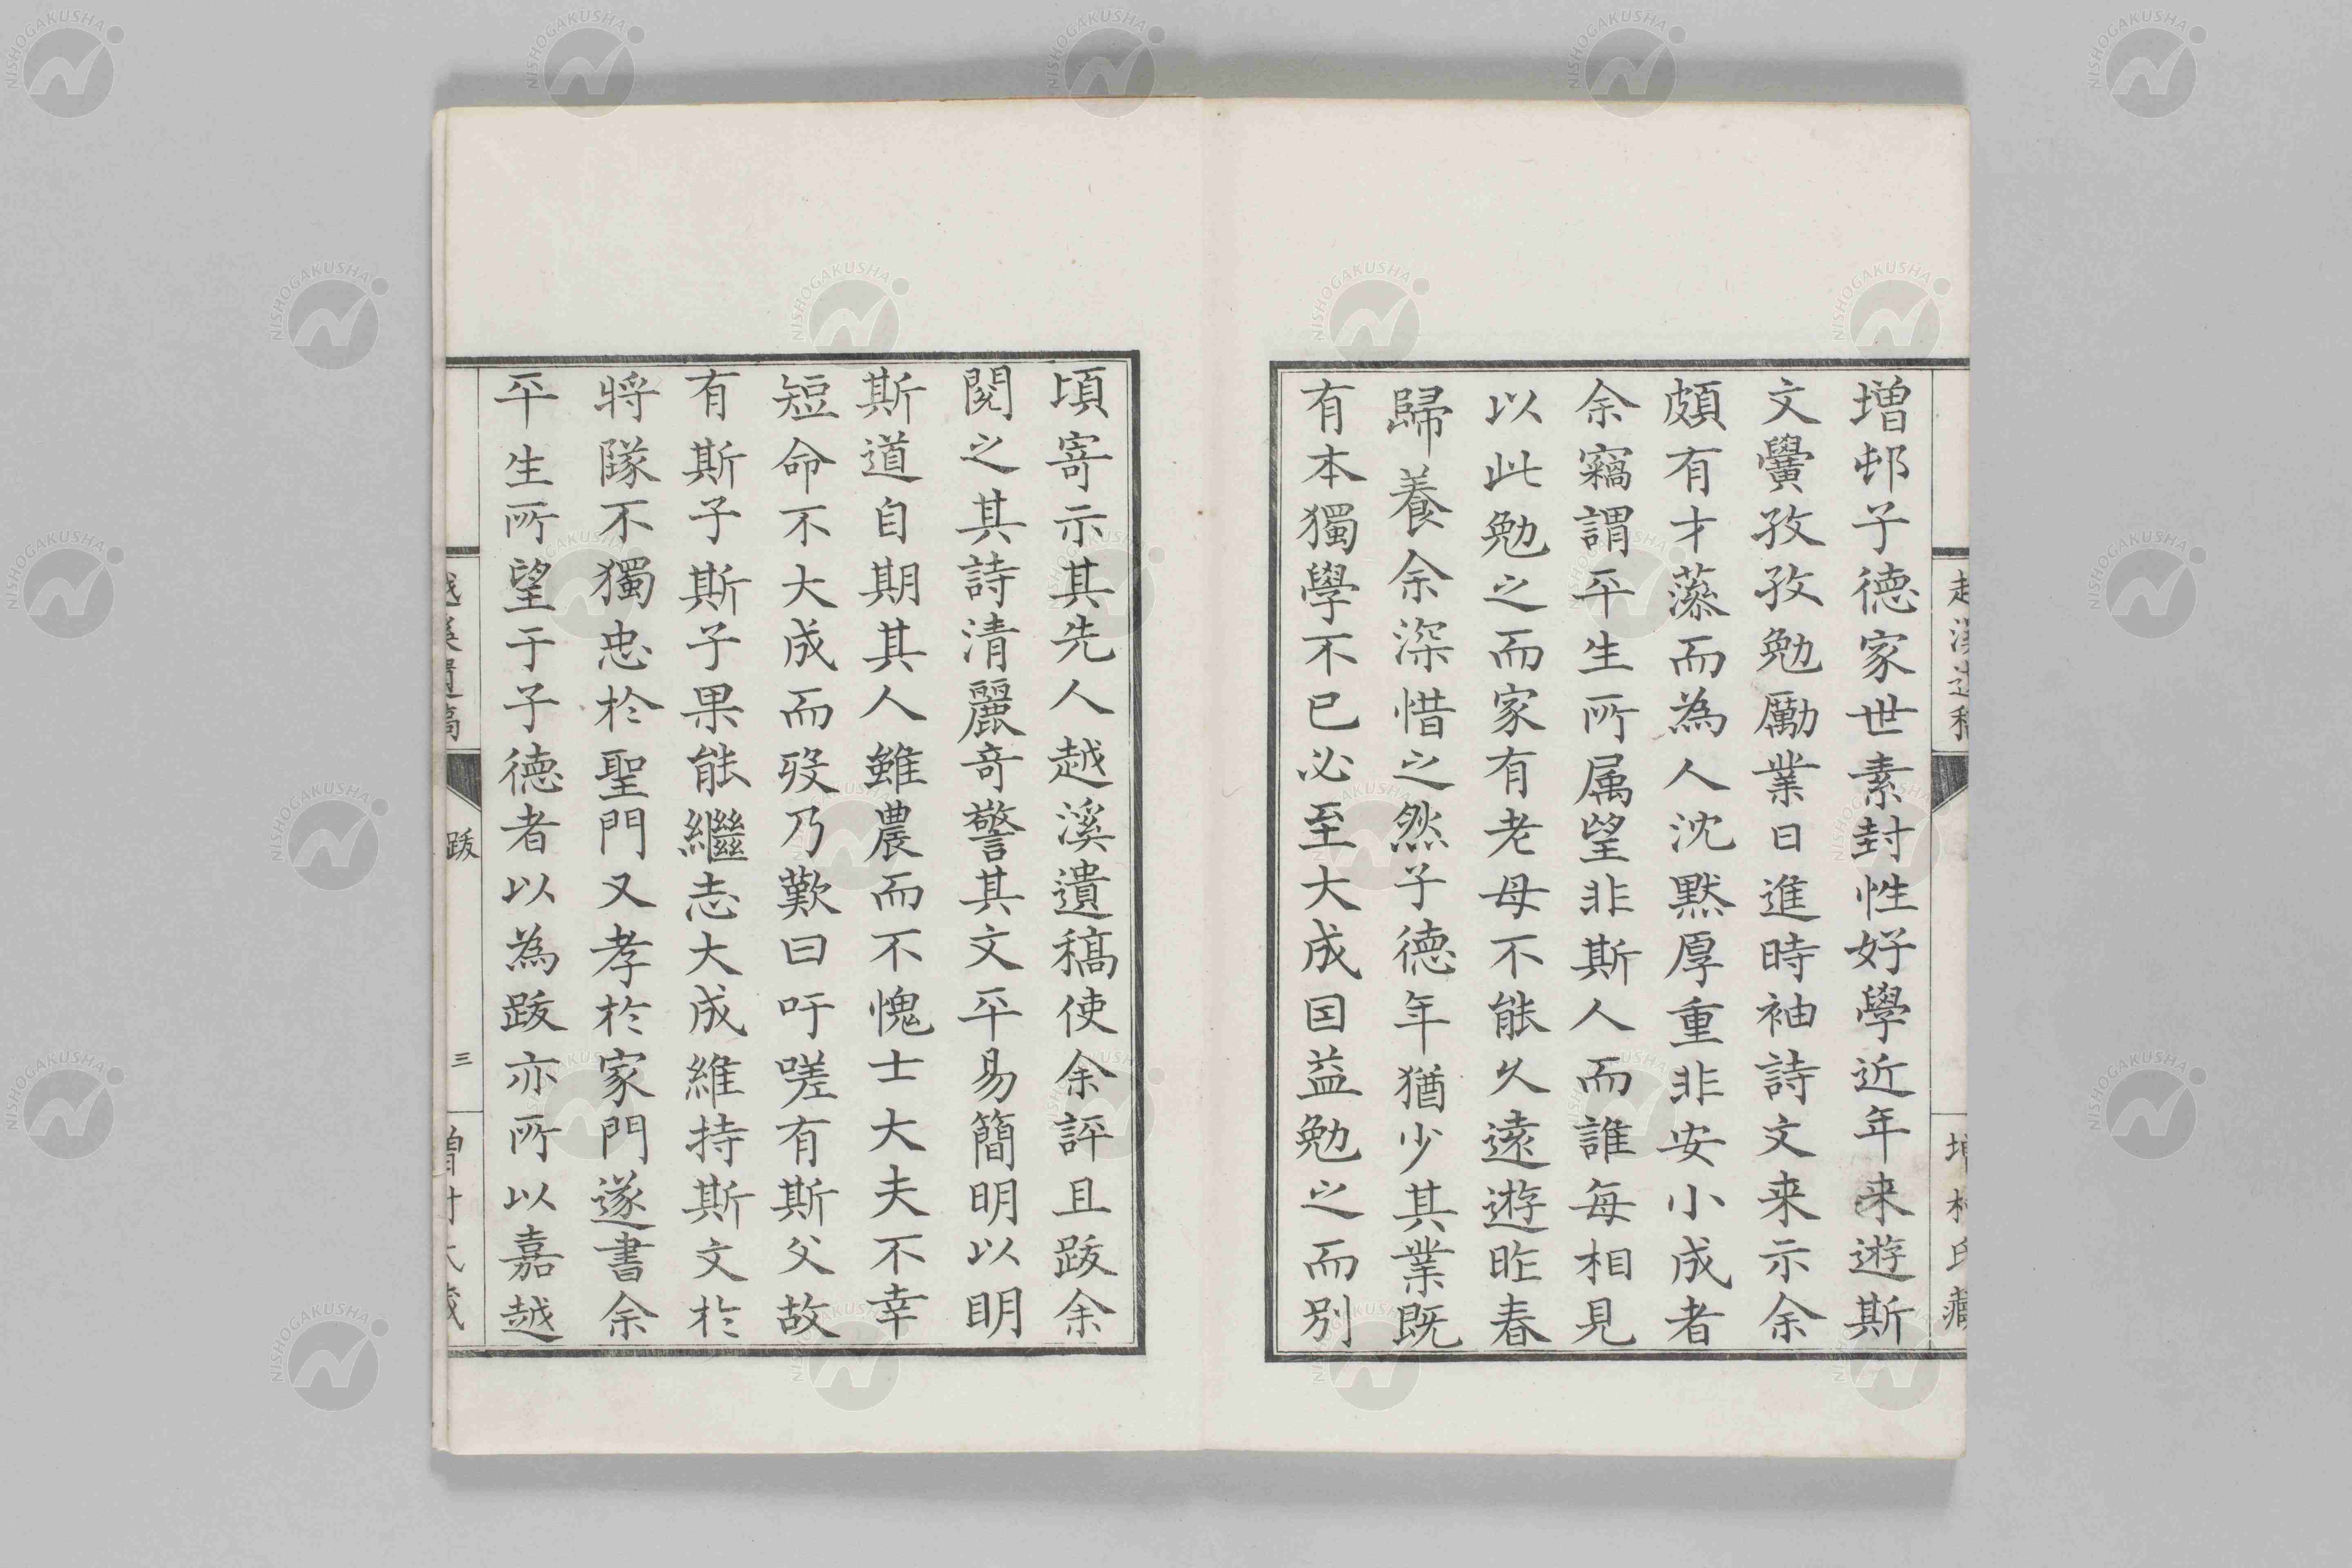 増邨子德家世素封性好學近年来遊斯
文黌孜孜勉勵業日進時袖詩文来示余
頗有才藻而為人沈默厚重非安小成者
余竊謂平生所属望非斯人而誰每相見
以此勉之而家有老母不能久遠遊昨春
歸養余深惜之然子德年猶少其業既
有本獨學不已必至大成因益勉之而別
頃寄示其先人越溪遺稿使余評且跋余
閱之其詩清麗奇警其文平易簡明以明
斯道自期其人雖農而不愧士大夫不幸
短命不大成而歿乃歎曰吁嗟有斯父故
有斯子斯子果能繼志大成維持斯文於
將隊不獨忠於聖門又孝於家門遂書余
平生所望于子德者以為跋亦所以嘉越
越溪遺稿
跋
三
増村氏藏
NISHOGAKUSHA